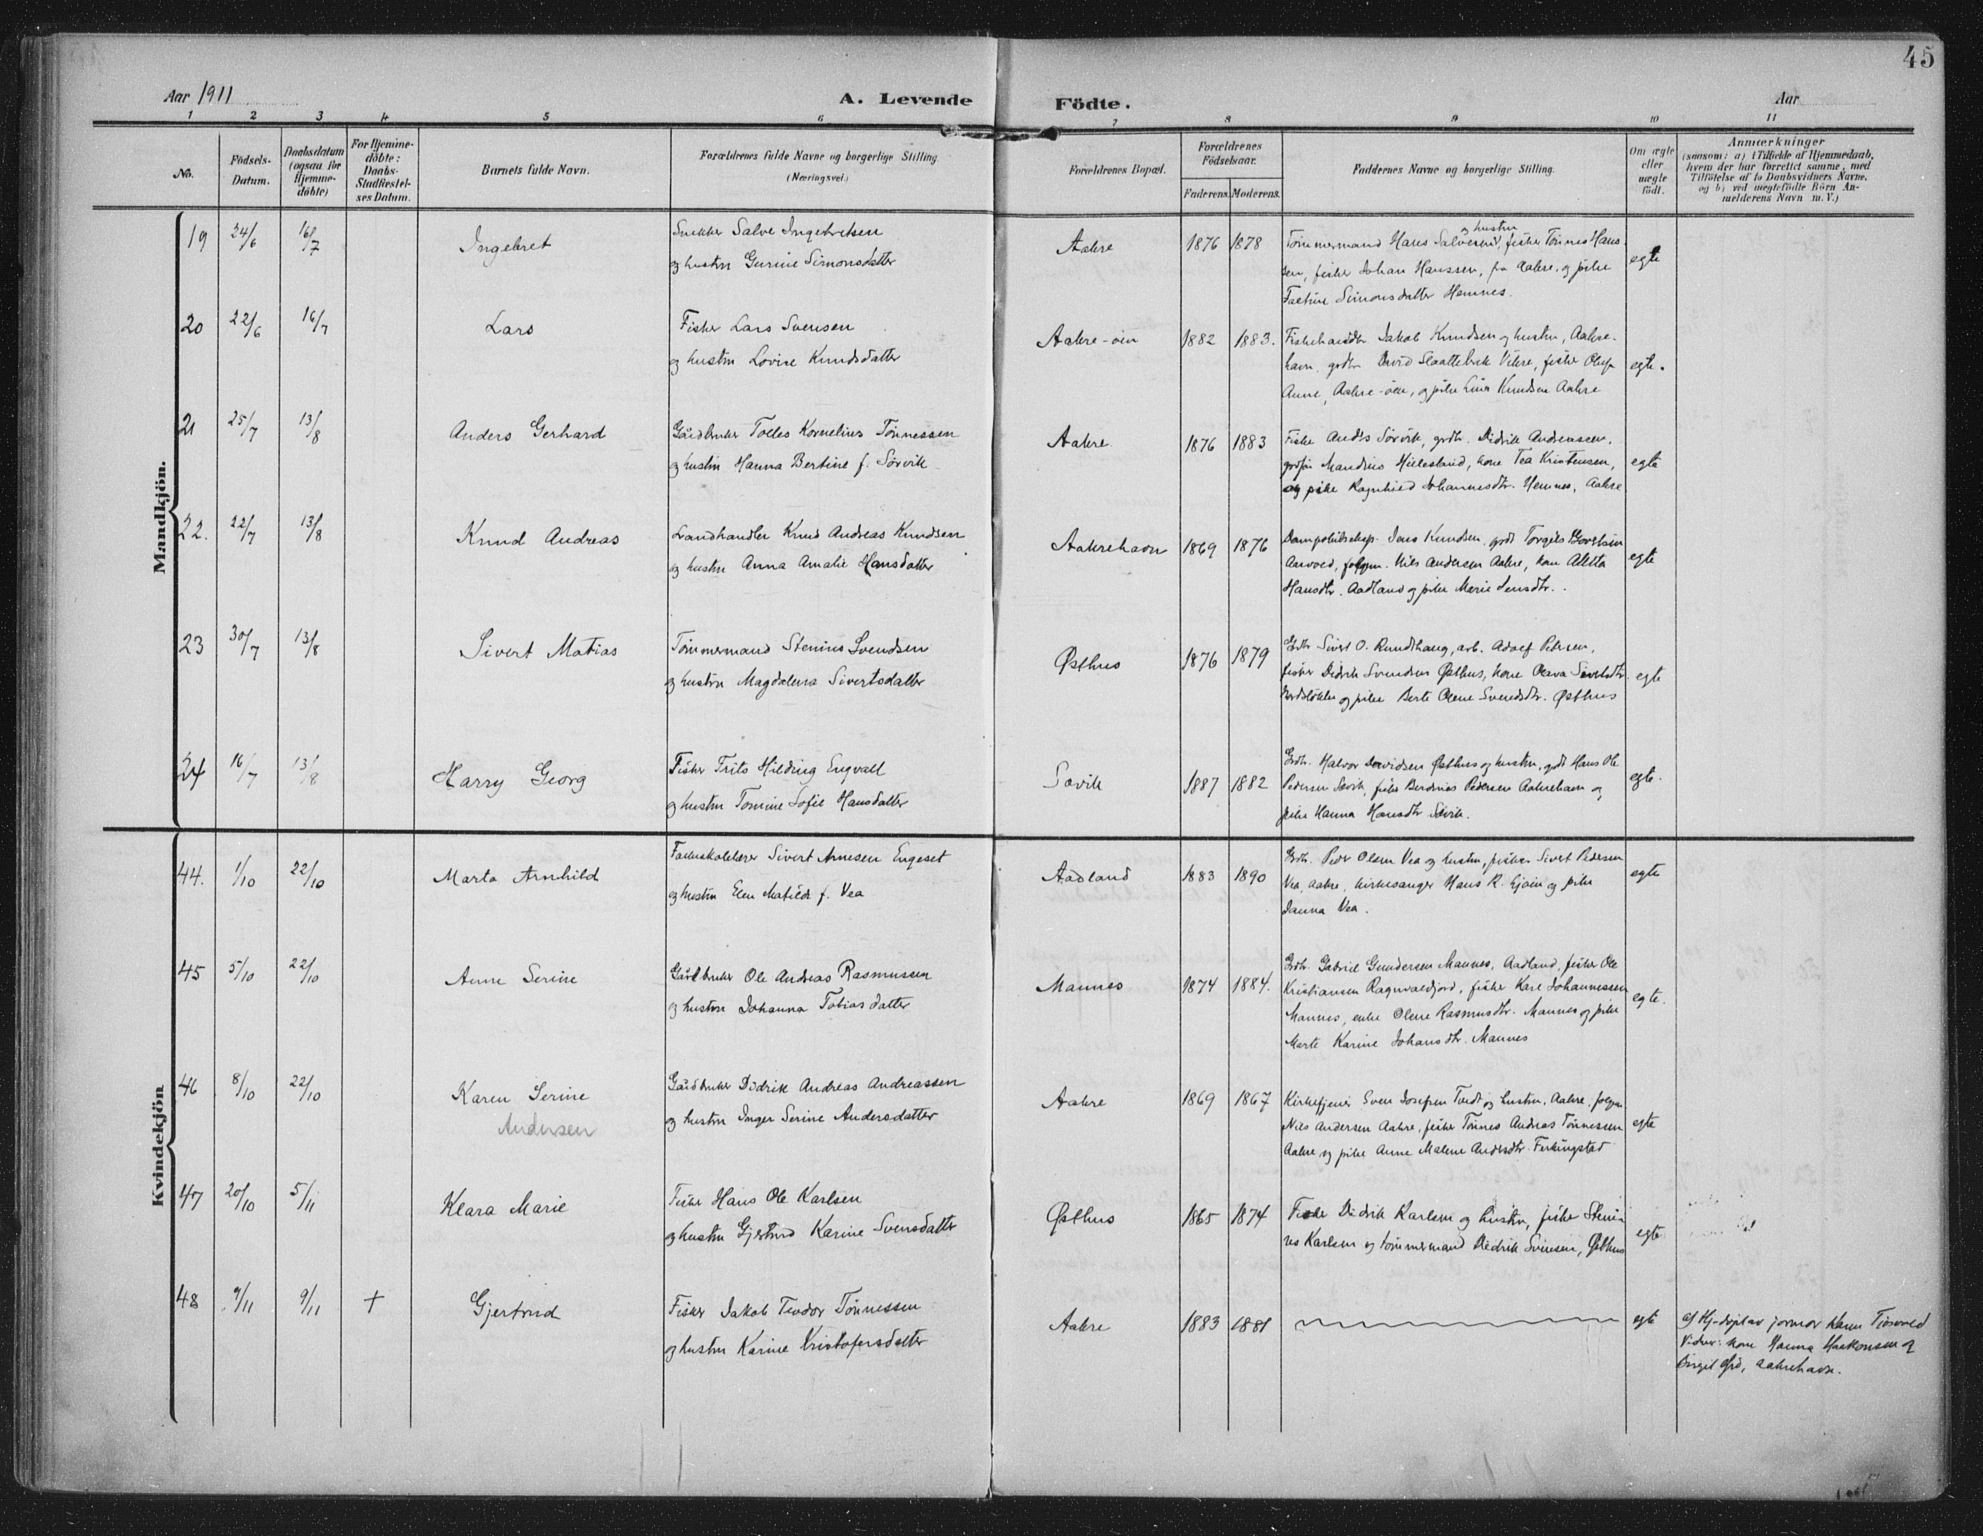 45
Aar 1911
A. Levende
Födte.
Aar
1 2 3 4 5 6 7 8 9 10 11
No.
Födsels-
Datum.
Daabsdatum
(ogsaa for
Hjemme-
döbte)
For Hjemme-
döbte:
Daabs-
Stadfæstel-
ses Datum.
Barnets fulde Navn.
Forældrenes fulde Navne og borgerlige Stilling
(Næringsvei.)
Forældrenes Bopæl.
Forældrenes
Födselsaar.
Faderens. Moderens.
Faddernes Navne og borgerlige Stilling.
Om ægte
eller
uægte
födt.
Anmærkninger
(saasom: a) i Tilfælde af Hjemmedaab,
hvem der har forrettet samme, med
Tilföielse af to Daabsvidners Navne,
og b) ved uægtefödte Börn An-
melderens Navn m. V.)
Mandkjön.
19 24/6 16/7 Ingebret
Snekker Salve Ingebretsen
og hustru Gurine Simonsdatter
Aakre 1876 1878
Tømmermand Hans Salvesen og hustru, fisker Tønnes Hans-
sen, fisker Johan Hanssen, fra Aakre, og pike
Simonsdatter Hemnes.
egte
20 22/6 16/7 Lars
Fisker Lars Svensen
og hustru Lovise Knudsdatter
Aakre-øen 1882 1883.
Jakob Knudsen og hustru, Aakre-
havn, grdbr. Vikre, fisker
Aakre-øen, og pike Knudsen Aakre
egte.
21 25/7 13/8 Anders Gerhard
Gårdbruker Tolles Kornelius Tønnessen
og hustru Hanna Bertine f. Sørvik
Aakre 1876 1883
Sørvik, grdbr. Didrik Andreassen,
kone Tea Kristensen,
og pike Ragnhild Johannesdtr. Hemnes, Aakre
egte
22. 22/7 13/8 Knud Andreas
Landhandler Knud Andreas Knudsen
og hustru Anna Amalie Hansdatter
Aakrehavn 1869 1876
Jens Knudsen, grdb Torgils
Nils Andersen Aakre, kone Aletta
Hansdtr. Aadland og pike Marie Jensdtr.
egte
23 30/7 13/8 Sivert Matias
Tømmermand Stenius Svendsen
og hustru Magdalena Sivertsdatter
Østhus 1876 1879
Grdbr. Sivert O. Rundhaug, arb. Adolf Petersen,
fisker Didrik Svendsen Østhus, kone Olava Sivertsdtr.
og pike Berte Olene Svendsdtr. Østhus
egte
24 16/7 13/8 Harry Georg
Fisker Frits Hilding Engvall
og hustru Tomine Sofie Hansdatter
Søvik 1887 1882
Grdbr. Halvor Davidsen Østhus og hustru, grdb Hans Ole
Pedersen Søvik, fisker Pedersen Aakrehavn og
pike Hanna Hansdtr Søvik.
egte.
Kvindekjön
44. 1/10 22/10 Marta Arnhild
Folkeskolelærer Sivert Arnesen Engeset
og hustru Elen Matilde f. Vea
Aadland 1883 1890
Grdbr. Peder Olsen Vea og hustru, fisker Sivert Pedersen
Vea, Aakre, kirkesanger Hans R. og pike
Janna Vea.
egte
45 5/10 22/10 Anne Serine
Gårdbruker Ole Andreas Rasmussen
og hustru Johanna Tobiasdatter
Mannes 1874 1884.
Grdbr. Gabriel Gundersen Mannes, Aadland, fisker Ole
Kristiansen Ragnvaldjord, fisker Karl Johannessen
Mannes, enke Olene Rasmusdtr. Mannes og pike
Marte Karine Johansdtr. Mannes
egte.
46 8/10 22/10 Karen Serine
Andersen
Gårdbruker Didrik Andreas Andreassen
og hustru Inger Serine Andersdatter
Aakre 1869 1867
Kirketjener Sven Josefsen Tvedt og hustru, Aakre,
Nils Andersen Aakre, fisker Tønnes Andreas Tønnessen
Aakre og pike Anne Malene Andersdtr. Ferkingstad
egte
47 20/10 5/11 Klara Marie
Fisker Hans Ole Karlsen
og hustru Gjertrud Karine Svensdatter
Østhus 1865 1874
Fisker Didrik Karlsen og hustru, fisker Steni-
us Karlsen og tømmermand Didrik Svensen, Østhus
egte
48 9/11 9/11 + Gjertrud
Fisker Jakob Teodor Tønnessen
og hustru Karine Kristofersdatter
Aakre 1883 1881
egte
Hj-døpt av jormor Karen
Vidner: kone Hanna Haakonsen og
Aakrehavn.